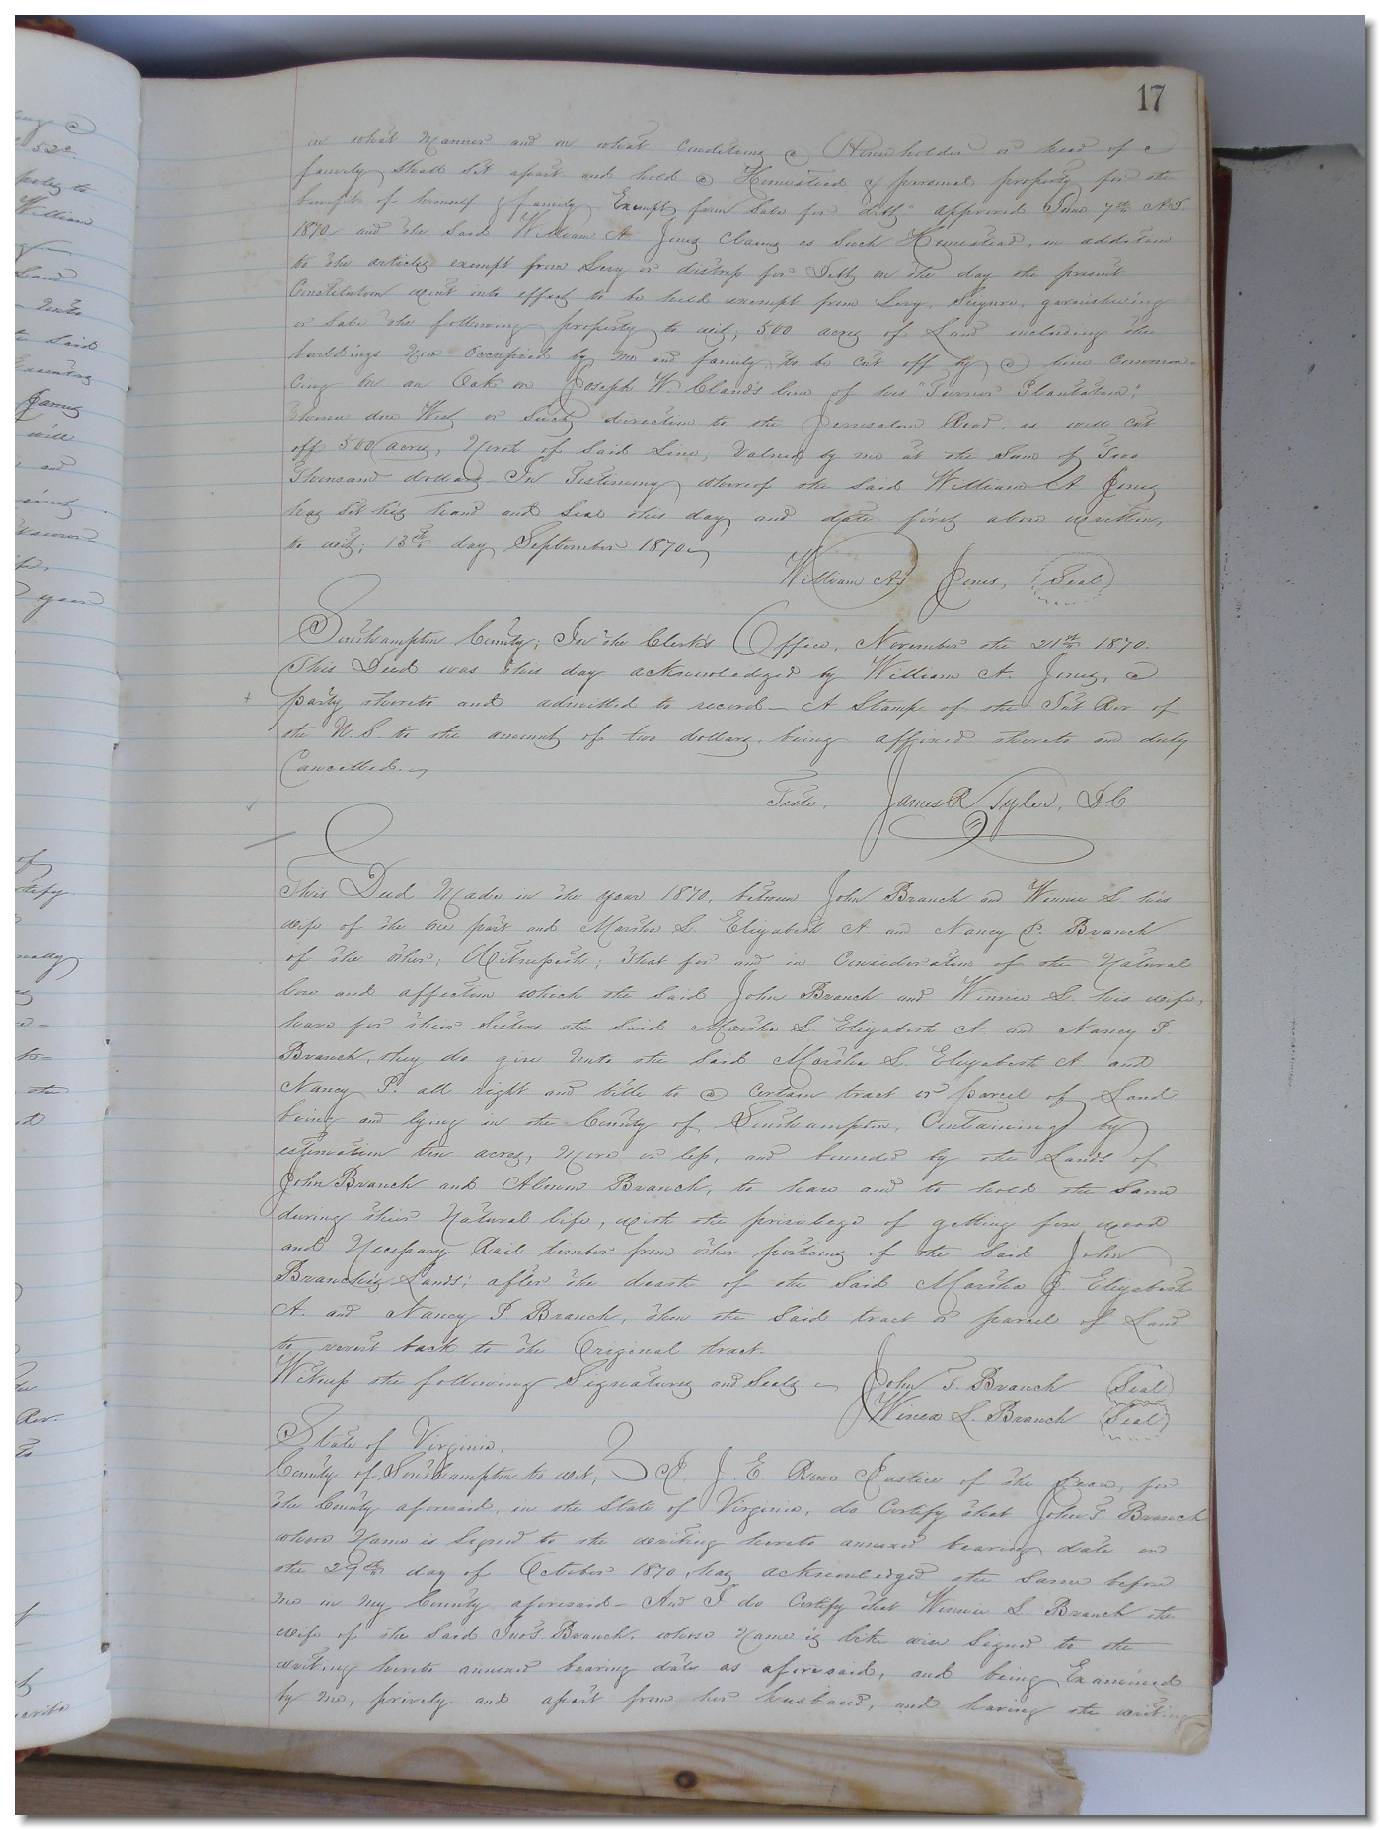 17
in what manner and on what conditions a Householder or head of a
family shall set apart and hold a Homestead & personal property for the
benefit of himself & family Exempt from Sale for debt" approved June 7th A.D.
1870 and the said William A. Jones claims as such Homestead, in addition
to the articles exempt from Levy or distress for Debt on the day the present
Constitution went into effect to be held exempt from Levy, Seizure, garnisheeing
or Sale the following property to wit; 500 acres of Land including the
buildings now occupied by me and family, to be cut off by a line commen-
cing on an Oak on Joseph W. Claud's line of his "Turner Plantation";
thence due West or such direction to the Jerusalem Road, as will cut
off 500 acres, North of said Line, Valued by me at the Sum of Two
Thousand dollars— In Testimony whereof the said William A Jones
has set his hand and Seal this day, and date first above written,
to wit; 13th day September 1870
William A. Jones, (Seal)
Southampton County; In the Clerk's Office, November the 21st 1870.
This Deed was this day acknowledged by William A. Jones, a
party thereto and admitted to record— A Stamp of the Int Rev of
the U.S. to the amount of two dollars, being affixed thereto and duly
Cancelled.
Teste, James R Tyler, D.C
This Deed Made in the year 1870, between John Branch and Winnie L his
wife of the one part and Martha S. Elizabeth A. and Nancy P. Branch
of the other; Witnesseth; That for and in Consideration of the Natural
love and affection which the said John Branch and Winnie L. his wife,
have for their Sisters the said Martha S. Elizabeth A. and Nancy P.
Branch, they do give unto the said Martha S. Elizabeth A. and
Nancy P. all right and title to a certain tract or parcel of Land
being and lying in the County of Southampton, Containing by
estimation ten acres, more or less, and bounded by the Lands of
John Branch and Branch, to have and to hold the Same
during their Natural life, with the privilege of getting fire wood
and Necessary Rail timber from other portions of the said John
Branch's Lands; after the death of the said Martha S. Elizabeth
A. and Nancy P. Branch, then the said tract or parcel of Land
to revert back to the Original tract.
Witness the following Signatures and Seals John T. Branch (Seal)
Winea L. Branch (Seal)
State of Virginia,
County of Southampton to wit, I, J. E. Justice of the Peace, for
the County aforesaid, in the State of Virginia, do Certify that John T Branch
whose Name is Signed to the writing hereto annexed bearing date on
the 29th day of October 1870, has acknowledged the Same before
me in my County aforesaid— And I do Certify that Winnie L. Branch the
wife of the said Jno T. Branch, whose Name is like wise Signed to the
writing hereto annexed bearing date as aforesaid, and being Examined
by me, privily and apart from her husband, and having the writing